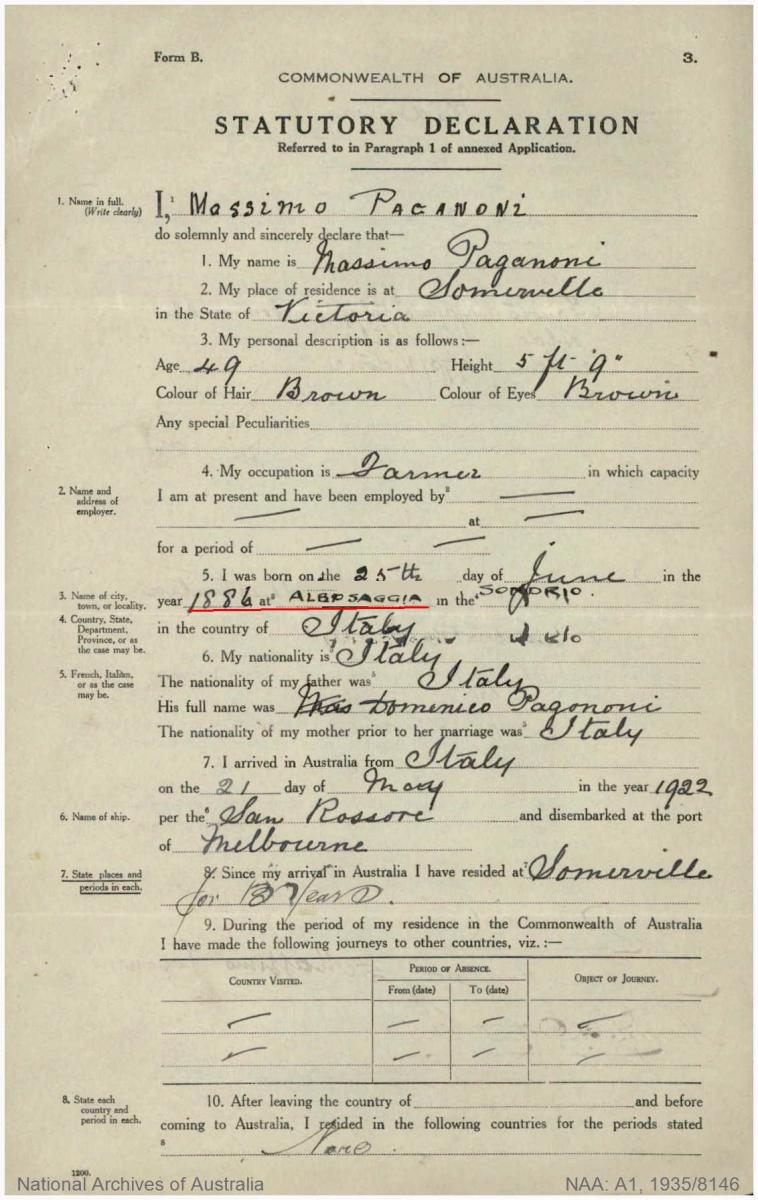 Form B.
3.
COMMONWEALTH OF AUSTRALIA.
STATUTORY DECLARATION
Referred to in Paragraph 1 of annexed Application.
1. Name in full. (Write clearly)
I,¹ Massimo PAGANONI
do solemnly and sincerely declare that—
1. My name is Massimo Paganoni
2. My place of residence is at Somerville
in the State of Victoria
3. My personal description is as follows:—
Age 49 Height 5 ft 9"
Colour of Hair Brown Colour of Eyes Brown
Any special Peculiarities
4. My occupation is Farmer in which capacity
2. Name and address of employer.
I am at present and have been employed by² —
— at —
for a period of — —
5. I was born on the 25th day of June in the
3. Name of city, town, or locality.
year 1886 at³ ALBOSAGGIA in the⁴ SONDRIO.
4. Country, State, Department, Province, or as the case may be.
in the country of Italy
6. My nationality is⁵ Italy
5. French, Italian, or as the case may be.
The nationality of my father was⁵ Italy
His full name was Domenico Pagononi
The nationality of my mother prior to her marriage was⁵ Italy
7. I arrived in Australia from Italy
on the 21 day of May in the year 1922
6. Name of ship.
per the⁶ San Rossore and disembarked at the port
of Melbourne
7. State places and periods in each.
8. Since my arrival in Australia I have resided at⁷ Somerville
for 13 Years.
9. During the period of my residence in the Commonwealth of Australia
I have made the following journeys to other countries, viz. :—
COUNTRY VISITED. PERIOD OF ABSENCE. OBJECT OF JOURNEY.
From (date) To (date)
— — — —
— — — —
8. State each country and period in each.
10. After leaving the country of and before
coming to Australia, I resided in the following countries for the periods stated
⁸ None.
1200.
National Archives of Australia
NAA: A1, 1935/8146